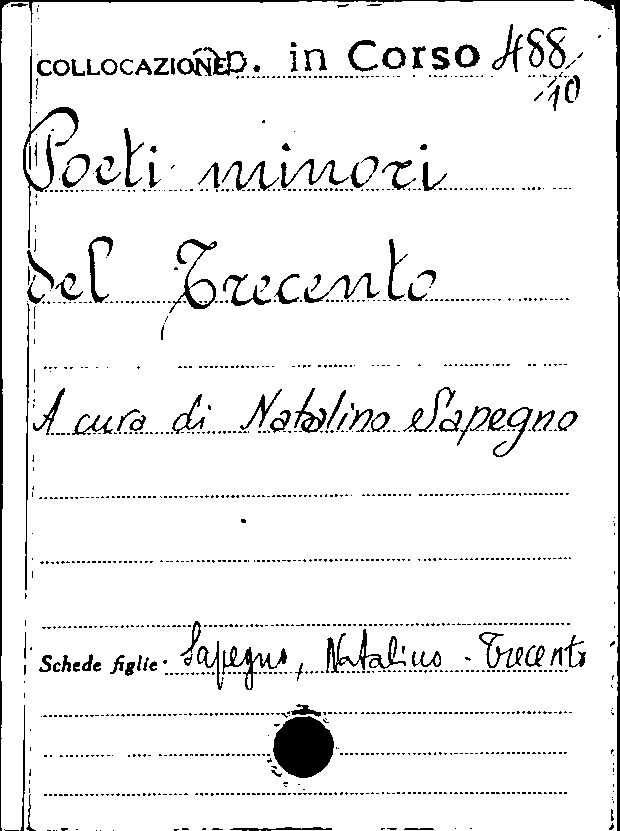 COLLOCAZIONE Op. in Corso 488
10
Poeti minori
del Trecento
A cura di Natalino Sapegno
Schede figlie: Sapegno, Natalino - Trecento